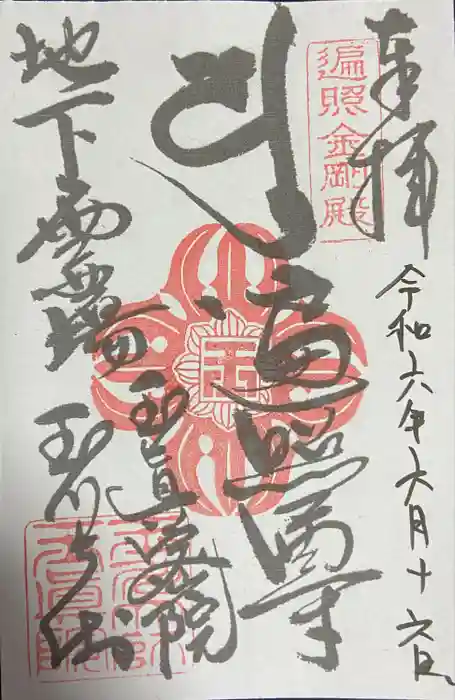 奉拝
令和六年六月十六日
遍照金剛殿
遍照尊
玉
地下霊場
玉眞密院
玉川大師